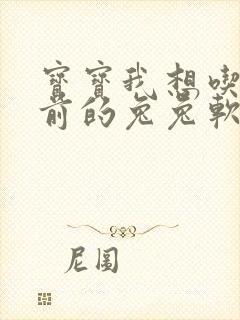 寶寶我想喫
前的兔兔軟
尼圖